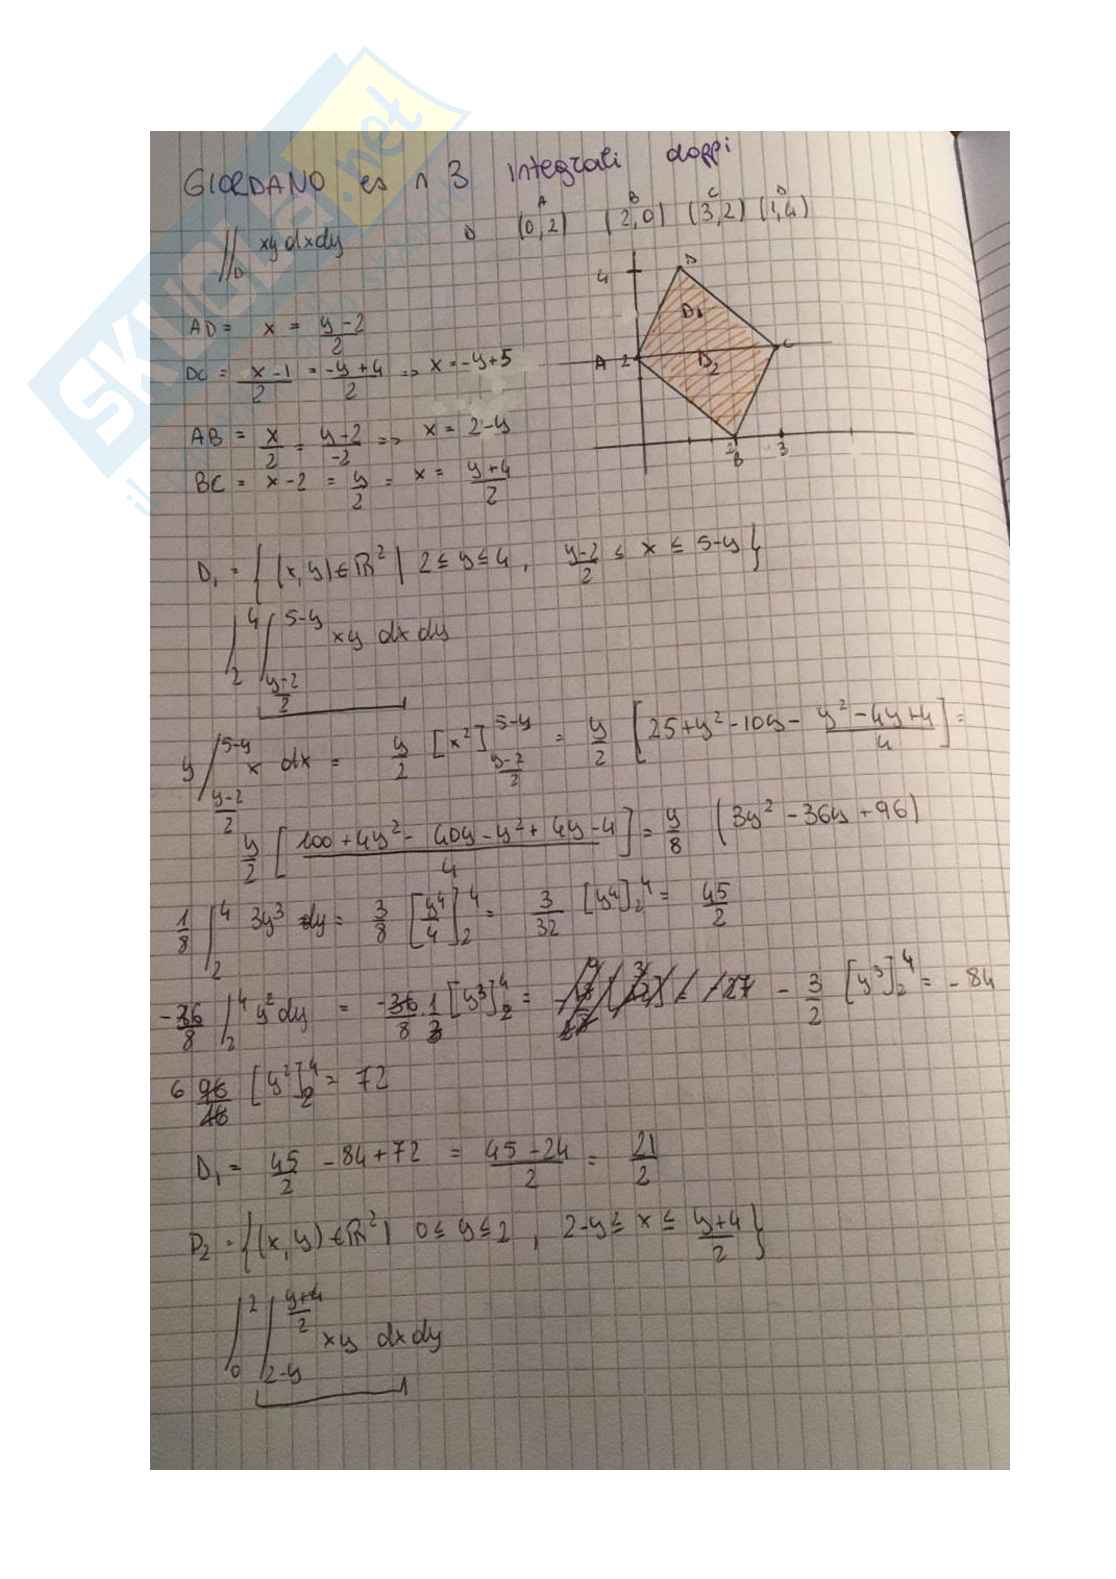 GIORDANO es n 3 integrali doppi
∬_D xy dxdy D A (0,2) B (2,0) C (3,2) D (1,4)
AD = x = (y-2)/2
DC = (x-1)/2 = (-y+4)/2 => x = -y+5
AB = x/2 = (y-2)/-2 => x = 2-y
BC = x-2 = y/2 = x = (y+4)/2
4 D
D1
A 2 D2 C
2 3
B
D1 = {(x,y)∈ℝ² | 2 ≤ y ≤ 4, (y-2)/2 ≤ x ≤ 5-y}
∫_2^4 ∫_{(y-2)/2}^{5-y} xy dxdy
y ∫_{(y-2)/2}^{5-y} x dx = y/2 [x²]_{(y-2)/2}^{5-y} = y/2 [25+y²-10y - (y²-4y+4)/4] =
y/2 [(100+4y²-40y-y²+4y-4)/4] = y/8 (3y²-36y+96)
1/8 ∫_2^4 3y³ dy = 3/8 [y⁴/4]_2^4 = 3/32 [y⁴]_2^4 = 45/2
-36/8 ∫_2^4 y² dy = -36/8 · 1/3 [y³]_2^4 = - 3/2 [y³]_2^4 = -84
6 96/16 [y²]_2^4 = 72
D1 = 45/2 -84+72 = (45-24)/2 = 21/2
D2 = {(x,y)∈ℝ² | 0 ≤ y ≤ 2, 2-y ≤ x ≤ (y+4)/2}
∫_0^2 ∫_{2-y}^{(y+4)/2} xy dxdy
SKUOLA.net